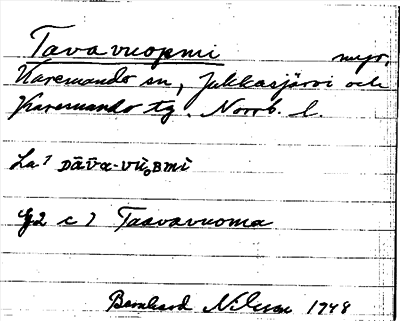 Tavavuopmi myr,
Karesuando sn, Jukkasjärvi och
Karesuando tg. Norrb. l.
La? DāV̄a-vūₒBmi
G2 c ? Taavavuoma
Bernhard Nilsson 1948